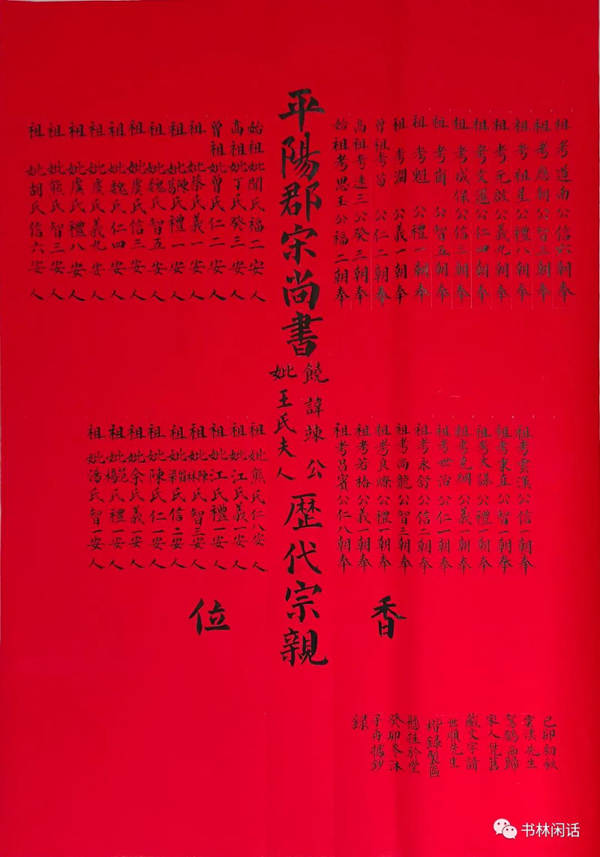 祖考道南公信六朝奉
祖考公智三朝奉
祖考祖星公禮八朝奉
祖考元啟公義九朝奉
祖考文通公仁四朝奉
祖考成保公信三朝奉
祖考崗公智五朝奉
祖考魁公禮一朝奉
祖考澗公義一朝奉
曾祖考荀公仁二朝奉
高祖考達三公癸三朝奉
始祖考思玉公福二朝奉
平陽郡宋尚書
饒諱竦公
妣王氏夫人
歷代宗親
始祖妣聞氏福二安人
高祖妣丁氏癸三安人
曾祖妣曾氏仁二安人
祖妣蔡氏義一安人
祖妣陳葛氏禮一安人
祖妣魏氏智五安人
祖妣虞氏信三安人
祖妣魏氏仁四安人
祖妣虞氏義九安人
祖妣虞氏禮八安人
祖妣熊氏智三安人
祖妣胡氏信六安人
祖考雲漢公信一朝奉
祖考東直公智一朝奉
祖考大謨公禮一朝奉
祖考光綱公義一朝奉
祖考世治公仁一朝奉
祖考永舒公信二朝奉
祖考尚龍公智三朝奉
祖考良爍公禮一朝奉
祖考若椿公義一朝奉
祖考昌賓公仁八朝奉
祖妣熊氏仁八安人
祖妣江氏義一安人
祖妣江氏禮一安人
祖妣陳林氏智三安人
祖妣梁氏信二安人
祖妣陳氏仁一安人
祖妣余氏義一安人
祖妣范楊氏禮一安人
祖妣湯氏智一安人
香
位
己卯初秋
雲溪先生
駕鶴西歸
家人凭舊
藏文字請
世順先生
抄錄製圖
懸挂於堂
癸卯冬沐
手再據鈔
錄
书林闲话